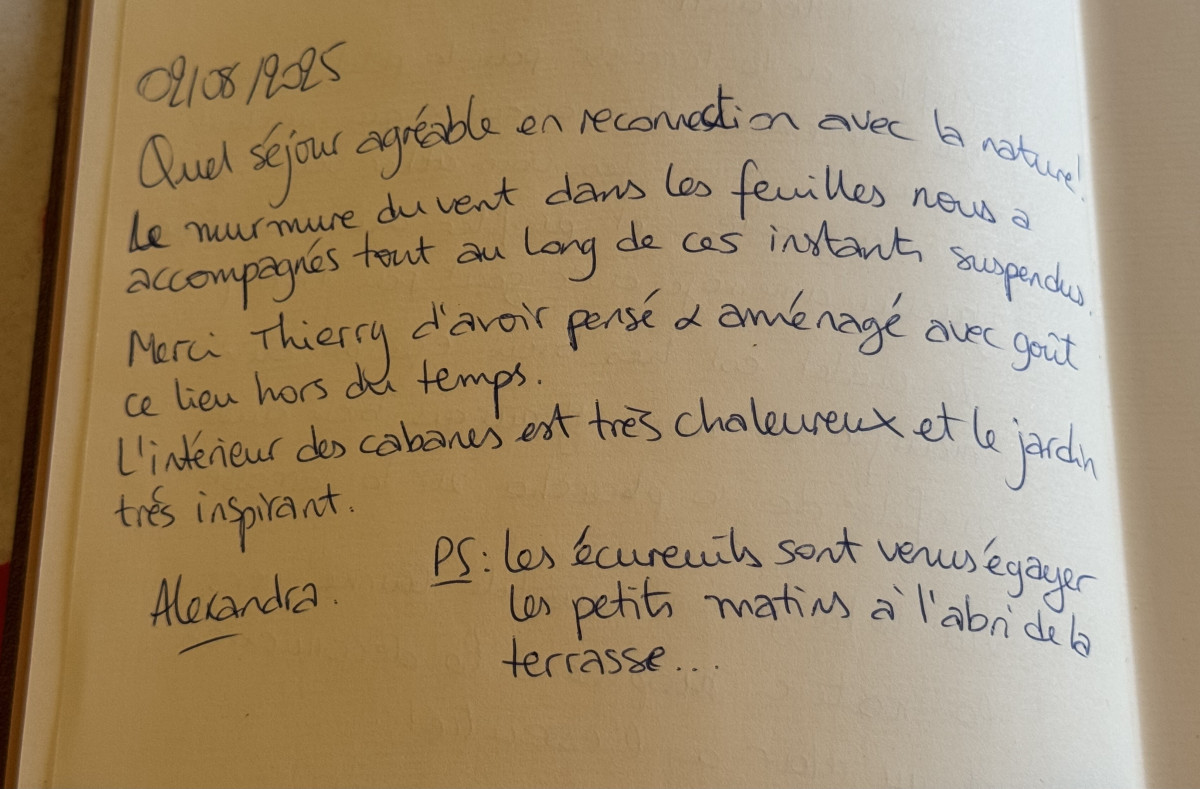 02/08/2025
Quel séjour agréable en reconnection avec la nature!
Le murmure du vent dans les feuilles nous a
accompagnés tout au long de ces instants suspendus.
Merci Thierry d'avoir pensé & aménagé avec goût
ce lieu hors du temps.
L'intérieur des cabanes est très chaleureux et le jardin
très inspirant.
Alexandra.
PS: Les écureuils sont venus égayer
les petits matins à l'abri de la
terrasse...